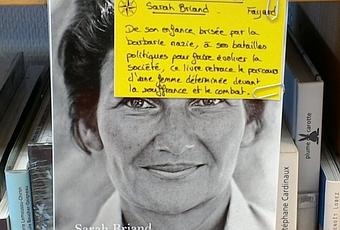 Sarah Briand Fayard
De son enfance, brisée par la
barbarie nazie, à ses batailles
politiques pour faire évoluer la
société, ce livre retrace le parcours
d'une femme déterminée devant
la souffrance et le combat.
Sarah Briand
plume de carotte
Stéphane Cardinaux